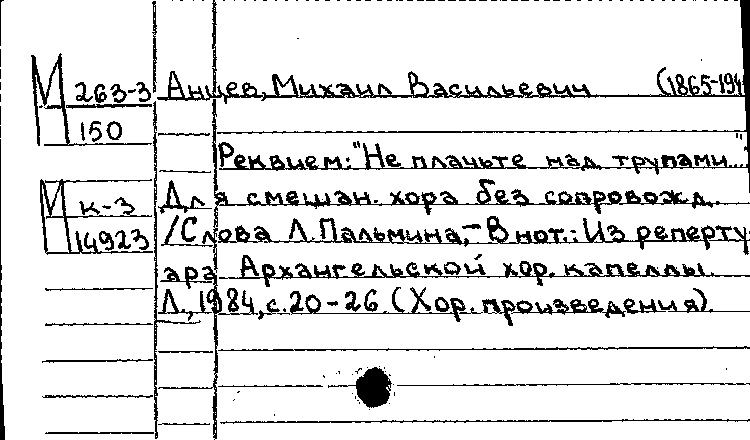 М 263-3 Анцев, Михаил Васильевич (1865-194
150
Реквием: "Не плачьте над трупами..."
М к-3 Для смешан. хора без сопровожд.
14923 /Слова Л. Пальмина,- В нот.: Из реперту-
ара Архангельской хор. капеллы.
Л., 1984, с. 20-26. (Хор. произведения).